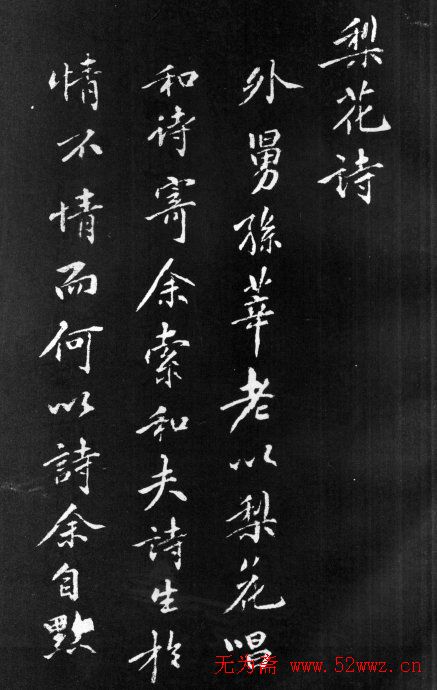 梨花詩
外舅孫莘老以梨花唱
和詩寄余索和夫詩生於
情不情而何以詩余自黜
无为斋 www.52wwz.cn